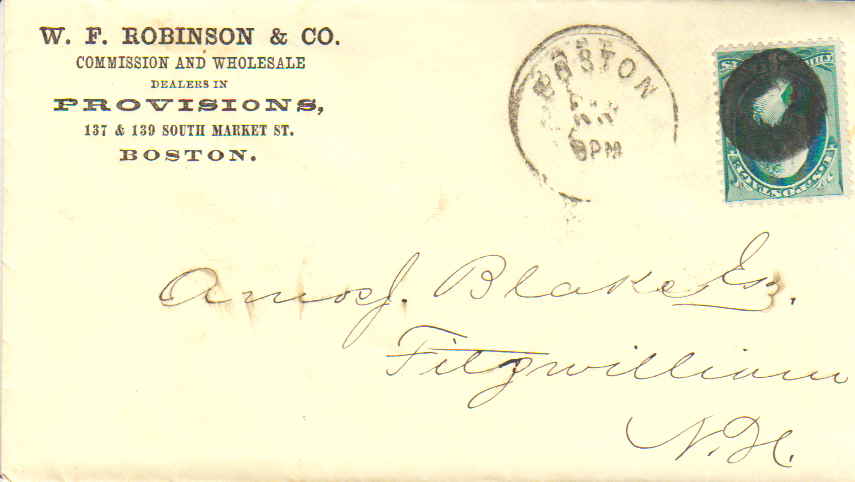 W. F. ROBINSON & CO.
COMMISSION AND WHOLESALE
DEALERS IN
PROVISIONS,
137 & 139 SOUTH MARKET ST.
BOSTON.
BOSTON
PM
Amos J. Blake Esq.
Fitzwilliam
N.H.